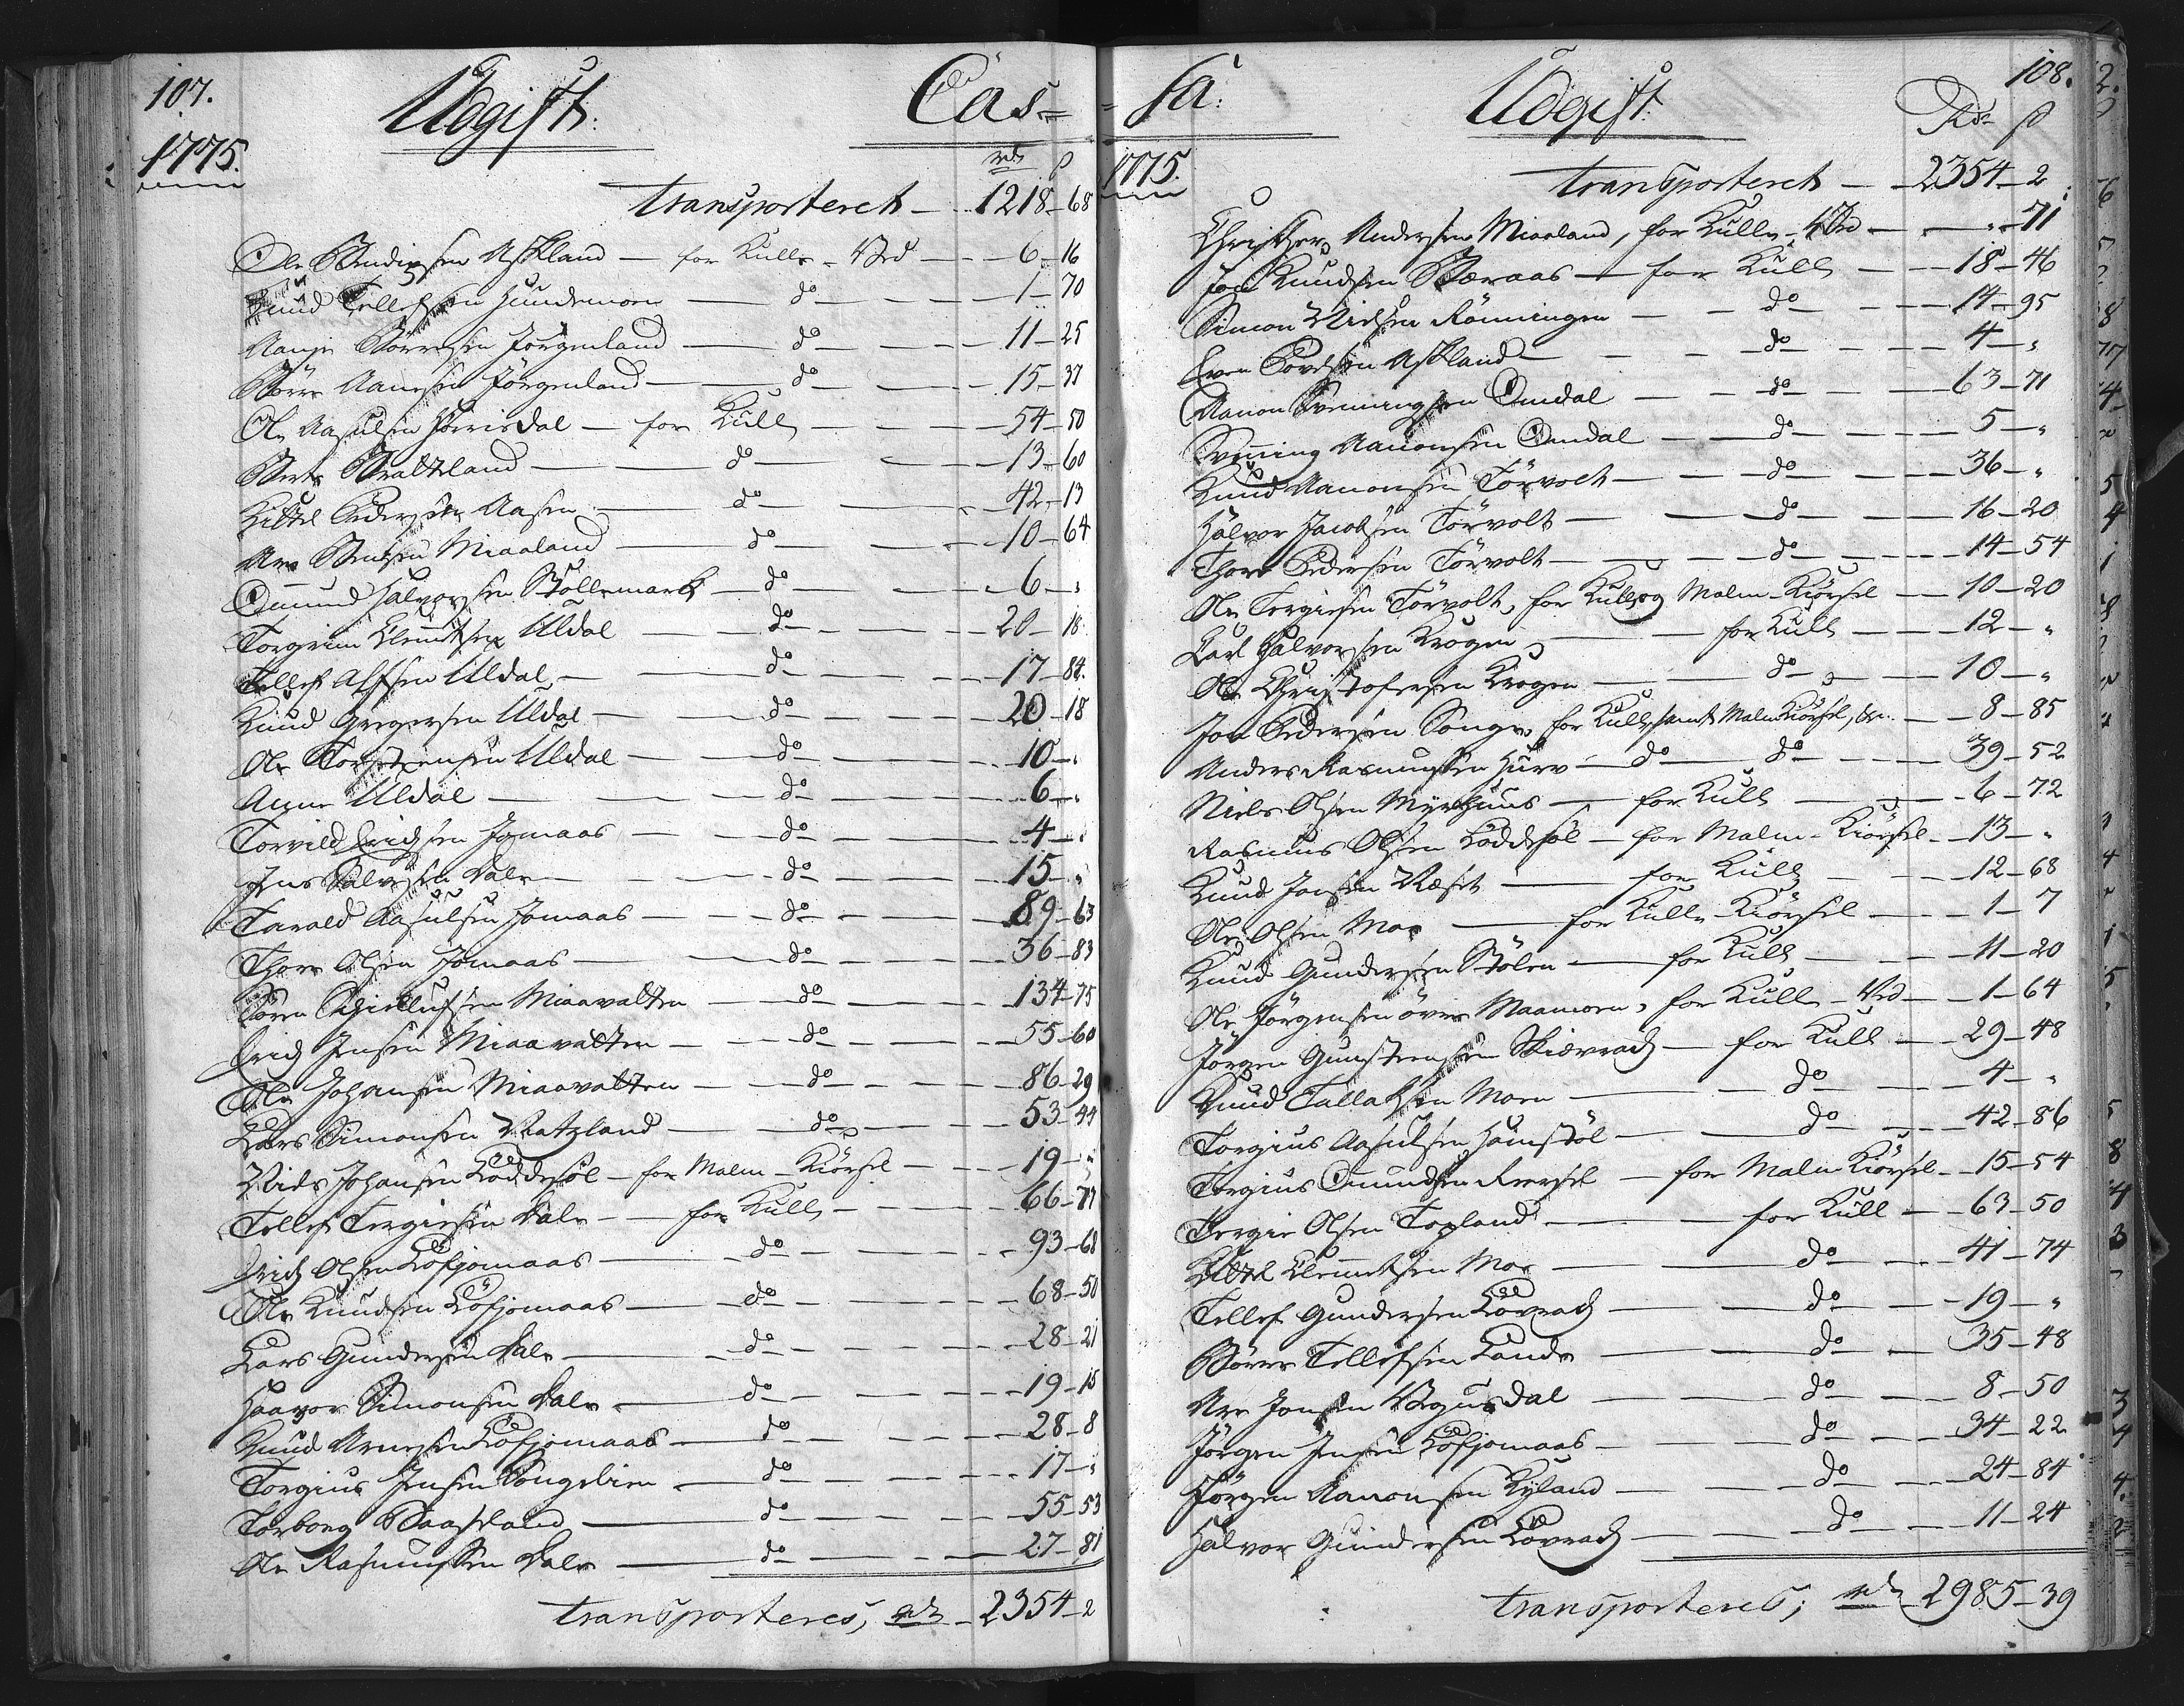 107.
Udgift: Cas=
1775. rd ß
transporteret — 1218 – 68
Ole Bendixsen Askland — for Kulle-Ved — 6 – 16
Knud Tellefsen Hundemoen — do — 1 – 70
Aanje Børresen Jørgenland — do — 11 – 25
Børre Aanesen Jørgenland — do — 15 – 37
Ole Aasulsen Hørrisdal — for Kull — 54 – 50
Berte Bratteland — do — 13 – 60
Kittel Pedersen Aasen — do — 42 – 13
Are Bentsen Miaaland — do — 10 – 64
Omund Halvorsen Stollemark — do — 6 – "
Torgrim Clemetsen Uldal — do — 20 – 18
Tellef Alfsen Uldal — do — 17 – 84.
Knud Gregersen Uldal — do — 20 – 18
Ole Torstensen Uldal — do — 10 – "
Anne Uldal — do — 6 – "
Torvild Erichsen Jomaas — do — 4 – "
Jens Salvesen Dale — do — 15 – "
Tarald Aasulsen Jomaas — do — 89 – 63
Thore Olsen Jomaas — do — 36 – 83
Søren Kjelufsen Miaavatten — do — 134 – 75
Erich Jensen Miaavatten — do — 55 – 60
Ole Johansen Miaavatten — do — 86 – 29
Lars Simonsen Ratzland — do — 53 – 44
Niels Johansen Løddesøl — for Malm-Kiørsel — 19 – "
Tellef Tergiesen Dale — for Kull — 66 – 77
Erich Olsen Løfjomaas — do — 93 – 68
Ole Knudsen Løfjomaas — do — 68 – 50
Lars Gundersen Dale — do — 28 – 21
Haavor Simonsen Dale — do — 19 – 15
Knud Arnesen Løfjomaas — do — 28 – 8
Torgius Jensen Songelien — do — 17 – "
Torborg Baaseland — do — 55 – 53
Ole Rasmussen Dale — do — 27 – 81
transporteres, rd — 2354 – 2
108.
sa: Udgift:
1775. Rdr ß
transporteret — 2354 – 2
Christopher Andersen Miaaland, for Kulle-Ved — " – 71
Jon Knudsen Bæraas — for Kull — 18 – 46
Simon Nielsen Rønningen — do — 14 – 95
Even Bordsen Askland — do — 4 – "
Aanon Svenningsen Omdal — do — 63 – 71
Svenning Aanonsen Omdal — do — 5 – "
Knud Aanonsen Tørvolt — do — 36 – "
Halvor Jacobsen Tørvolt — do — 16 – 20
Thore Pedersen Tørvolt — do — 14 – 54
Ole Tergiesen Tørvolt, for Kull og Malm-Kiørsel — 10 – 20
Carl Halvorsen Krogen — for Kull — 12 – "
Ole Christofersen Krogen — do — 10 – "
Jon Pedersen Songe, for Kull samt Malm Kiørsel, — 8 – 85
Anders Rasmussen Hurv — do — do — 39 – 52
Niels Olsen Myrhuus — for Kull — 6 – 72
Rasmus Olsen Løddesøl — for Malm-Kiørsel — 13 – "
Knud Jonsen Næset — for Kull — 12 – 68
Ole Olsen Moe — for Kulle-Kiørsel — 1 – 7
Knud Gundersen Stølen — for Kull — 11 – 20
Ole Jørgensen øvre Maamoen, for Kulle-Ved — 1 – 64
Jørgen Gunstensen Skievrach — for Kull — 29 – 48
Knud Tallaksen Moen — do — 4 – "
Torgius Aasulsen Heimstøl — do — 42 – 86
Tergius Omundsen Reersøl — for Malm Kiørsel — 15 – 54
Tergie Olsen Topland — for Kull — 63 – 50
Kittel Clemetsen Moe — do — 41 – 74
Tellef Gundersen Løvrach — do — 19 – "
Børre Tellefsen Lande — do — 35 – 48
Are Jonsen Vegusdal — do — 8 – 50
Jørgen Jensen Løfjomaas — do — 34 – 22
Jørgen Aanonsen Ryland — do — 24 – 84
Halvor Gundersen Løvrach — do — 11 – 24
transporteres; rd — 2985 – 39